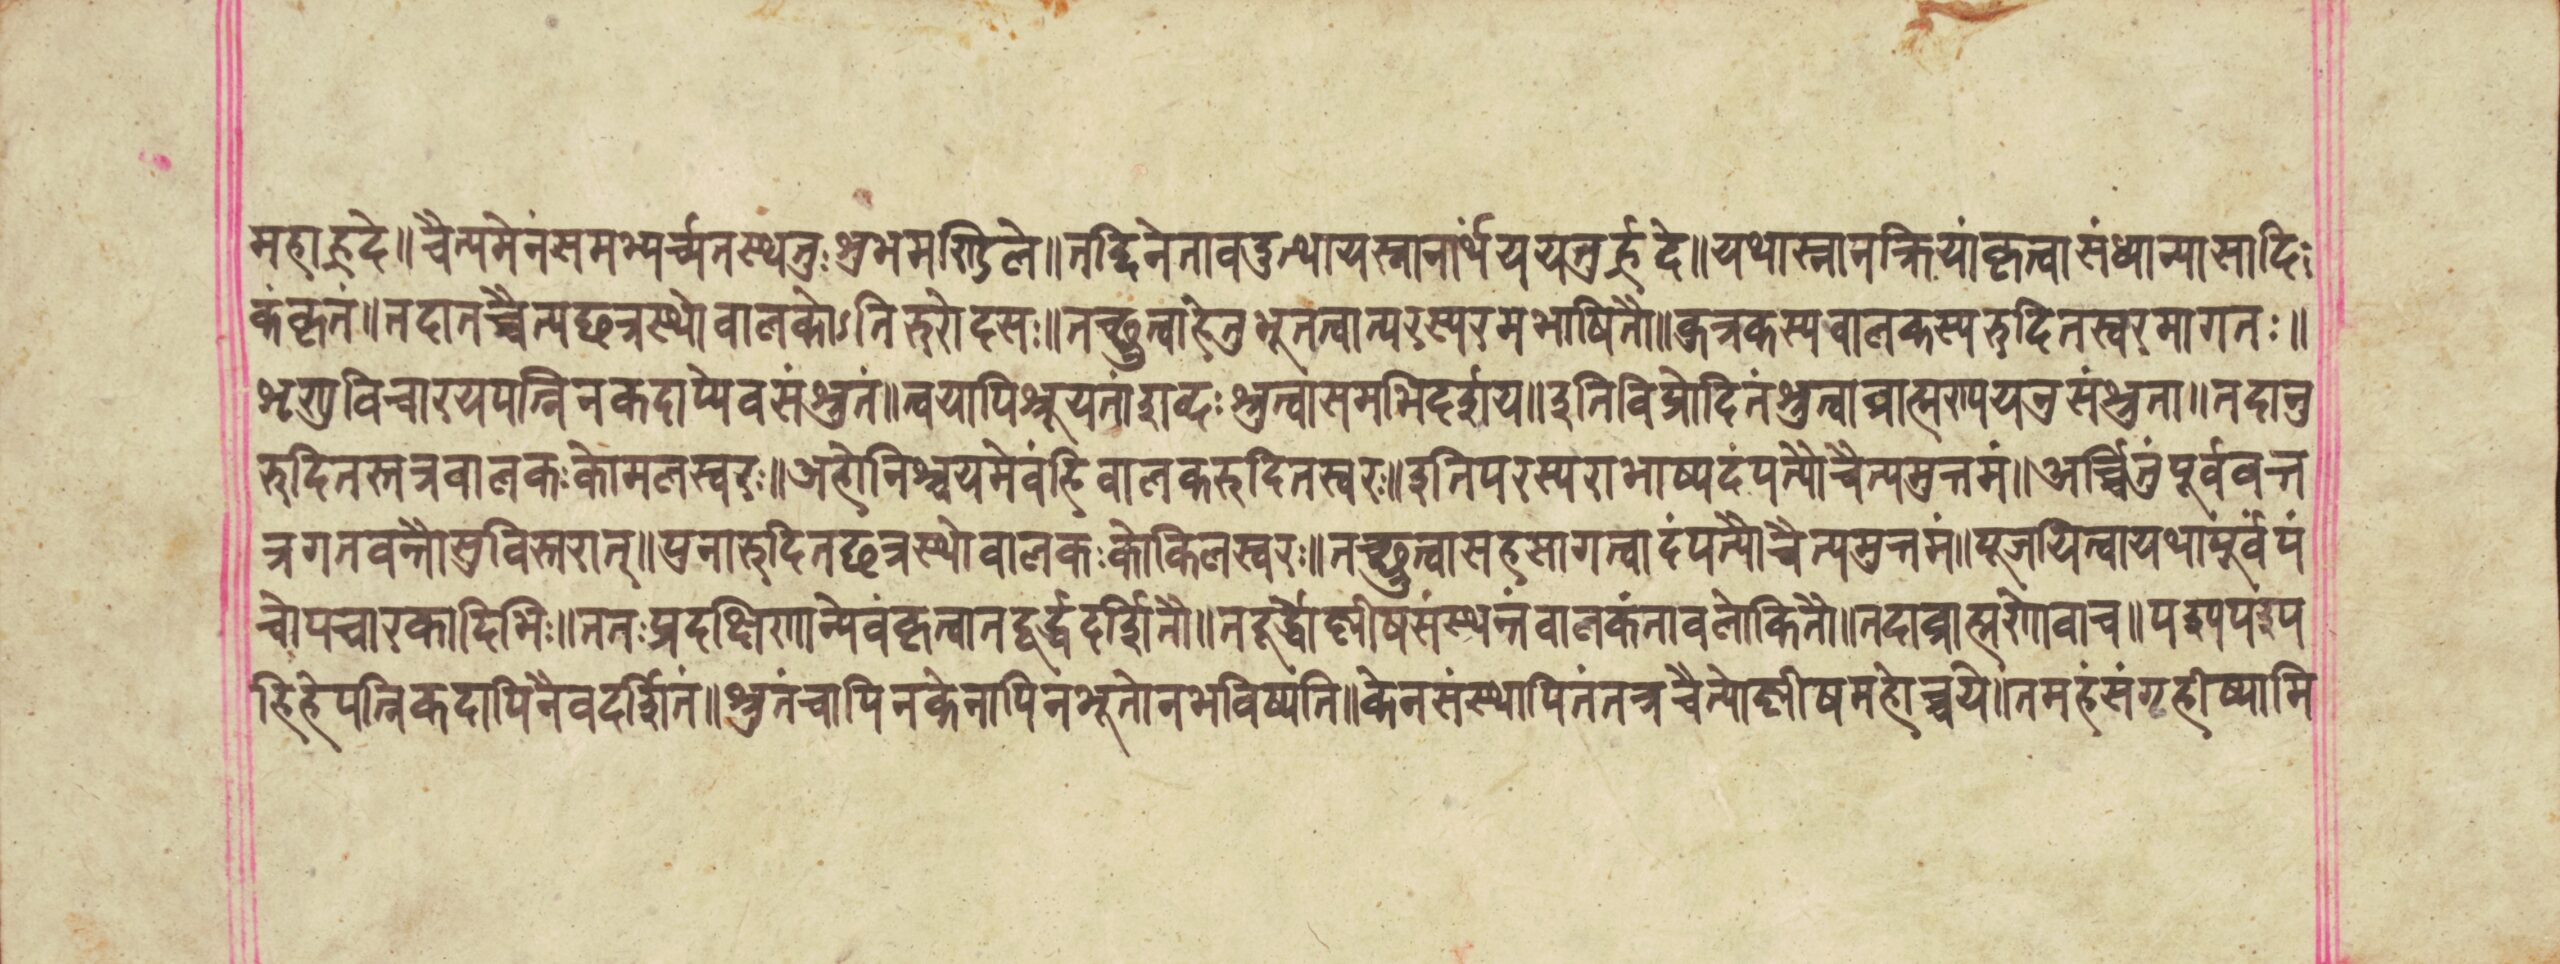 महाह्रदे॥चैत्यमेनंसमभ्यर्च्चतस्थतुःशुभमण्डिले॥तद्दिनेतावदुत्थायस्नानार्थंययतुर्ह्रदे॥यथास्नानक्रियांकृत्वासंध्यान्यासादि
कंकृतं॥तदातच्चैत्यछत्रस्थोवालकोऽतिरुरोदसः॥तच्छ्रुत्वाहेतुभूतत्वात्परस्परमभाषितौ॥कुत्रकस्यवालकस्यरुदितस्वरमागतः॥
शृणुविचारयपत्नि नकदाप्येवसंश्रुतं॥त्वयापिश्रूयतांशब्दःश्रुत्वासमभिदर्शय॥इतिविप्रोदितंश्रुत्वाब्राह्मण्यपयतुसंश्रुता॥तदातु
रुदितस्तत्रवालकःकोमलस्वरः॥अहोनिश्चयमेवंहिवालकरुदितस्वरः॥इतिपरस्पराभाष्यदंपत्यौचैत्यमुत्तमं॥अर्च्चितुंपूर्ववत्त
त्रगतवन्तौसुविस्तरात्॥पुनारुदितछत्रस्थोवालकःकोकिलस्वरः॥तच्छ्रुत्वासहसागत्वादंपत्यौचैत्यमुत्तमं॥पूजयित्वायथापूर्वंपं
चोपचारकादिभिः॥ततःप्रदक्षिणान्येवंकृत्वातदूर्द्ध्वदर्शितौ॥तदूर्द्ध्वोष्णीषसंस्थन्तंवालकंतावलोकितौ॥तदाब्राह्मणोवाच॥पश्यपश्यप
हिहेपत्निकदापिनैवदर्शितं॥श्रुतंचापिनकेनापिनभूतोनभविष्यति॥केनसंस्थापितंतत्रचैत्योष्णीषमहोच्चये॥तमहंसंगृहीष्यामि